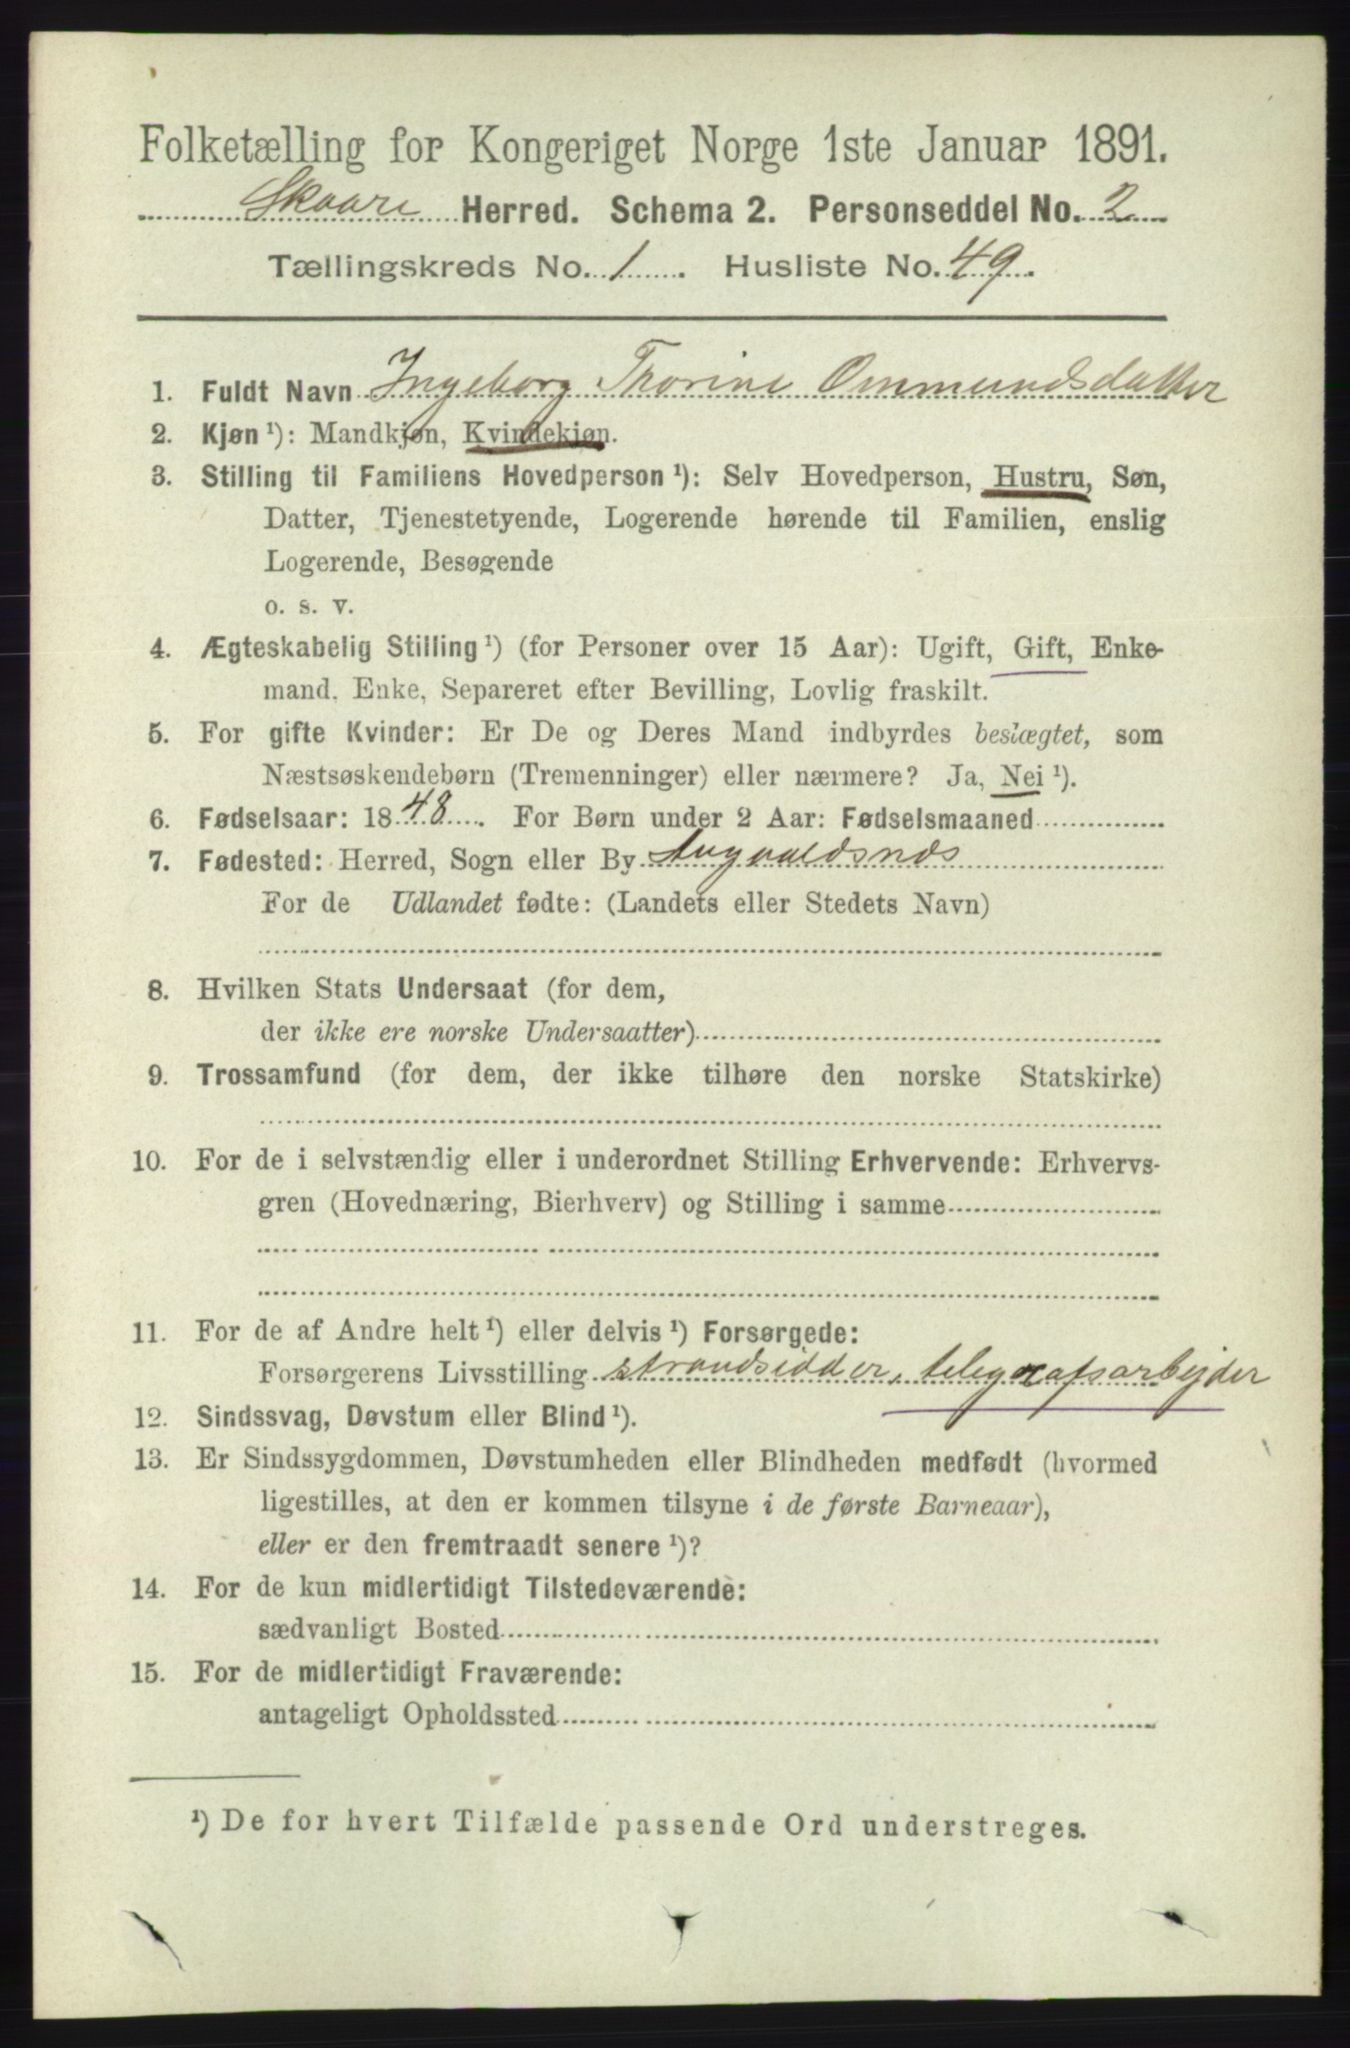 Folketælling for Kongeriget Norge 1ste Januar 1891.
Skaare Herred. Schema 2. Personseddel No. 2
Tællingskreds No. 1. Husliste No. 49.
1. Fuldt Navn Ingeborg Thorine Ommundsdatter
2. Kjøn ¹): Mandkjøn, Kvindekjøn.
3. Stilling til Familiens Hovedperson ¹): Selv Hovedperson, Hustru, Søn,
Datter, Tjenestetyende, Logerende hørende til Familien, enslig
Logerende, Besøgende
o. s. v.
4. Ægteskabelig Stilling ¹) (for Personer over 15 Aar): Ugift, Gift, Enke-
mand, Enke, Separeret efter Bevilling, Lovlig fraskilt.
5. For gifte Kvinder: Er De og Deres Mand indbyrdes beslægtet, som
Næstsøskendebørn (Tremenninger) eller nærmere? Ja, Nei ¹).
6. Fødselsaar: 1848. For Børn under 2 Aar: Fødselsmaaned
7. Fødested: Herred, Sogn eller By Augvaldsnæs
For de Udlandet fødte: (Landets eller Stedets Navn)
8. Hvilken Stats Undersaat (for dem,
der ikke ere norske Undersaatter)
9. Trossamfund (for dem, der ikke tilhøre den norske Statskirke)
10. For de i selvstændig eller i underordnet Stilling Erhvervende: Erhvervs-
gren (Hovednæring, Bierhverv) og Stilling i samme
11. For de af Andre helt ¹) eller delvis ¹) Forsørgede:
Forsørgerens Livsstilling strandsidder, telegrafsarbejder
12. Sindssvag, Døvstum eller Blind ¹).
13. Er Sindssygdommen, Døvstumheden eller Blindheden medfødt (hvormed
ligestilles, at den er kommen tilsyne i de første Barneaar),
eller er den fremtraadt senere ¹)?
14. For de kun midlertidigt Tilstedeværende:
sædvanligt Bosted
15. For de midlertidigt Fraværende:
antageligt Opholdssted
¹) De for hvert Tilfælde passende Ord understreges.